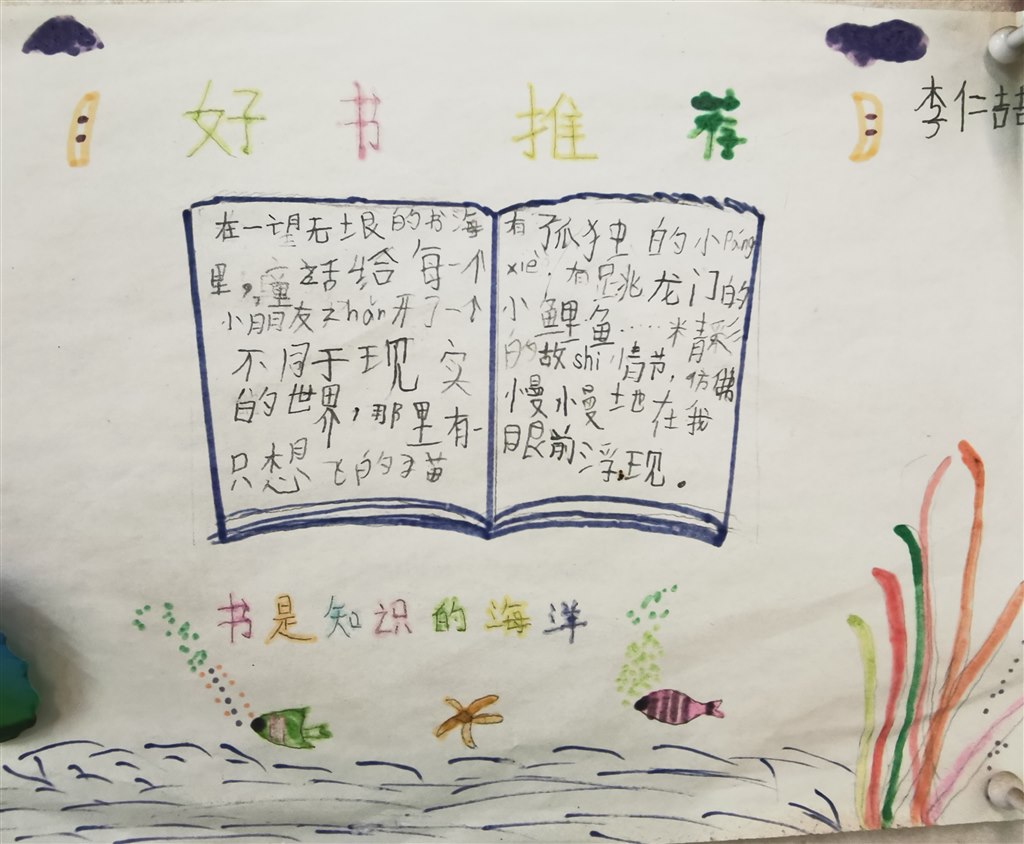 好书推荐
李仁喆
在一望无垠的书海
里,童话给每一个
小朋友zhǎn开了一个
不同于现实
的世界,那里有一
只想飞的猫
有孤独的小páng
xiè,有跳龙门的
小鲤鱼……精彩
的故shi情节,仿佛
慢慢地在我
眼前浮现。
书是知识的海洋